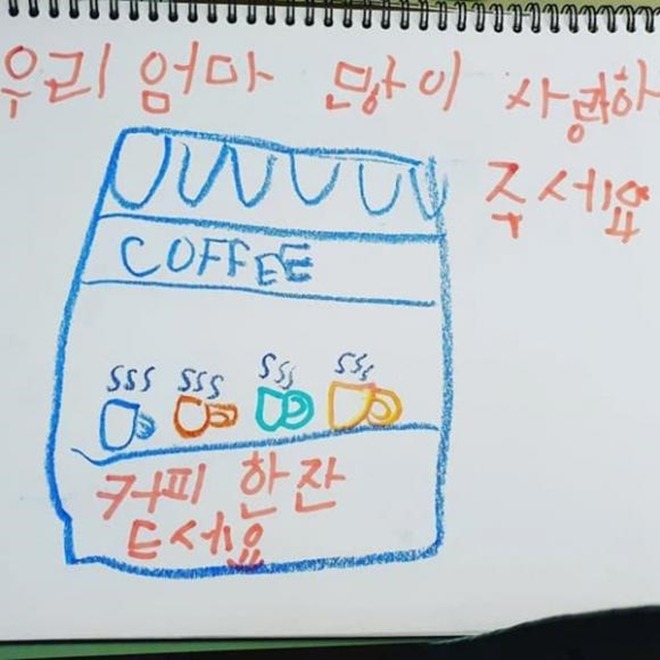 우리 엄마 많이 사랑하
주세요
COFFEE
커피 한잔
드세요